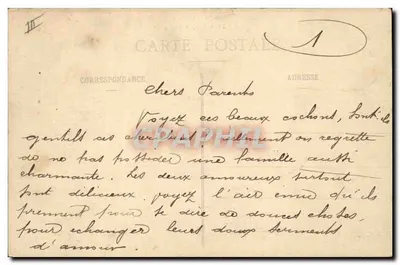 III
1
CARTE POSTALE
CORRESPONDANCE
ADRESSE
Chers Parents
Voyez ces beaux cochons, sont-ils
gentils ces cher bons! vraiment on regrette
de ne pas posséder une famille aussi
charmante. Les deux amoureux surtout
sont délicieux. voyez l'air ému qu'ils
prennent pour se dire de douces choses,
pour echanger leurs doux serments
d'amour.
CPAPHIL.COM